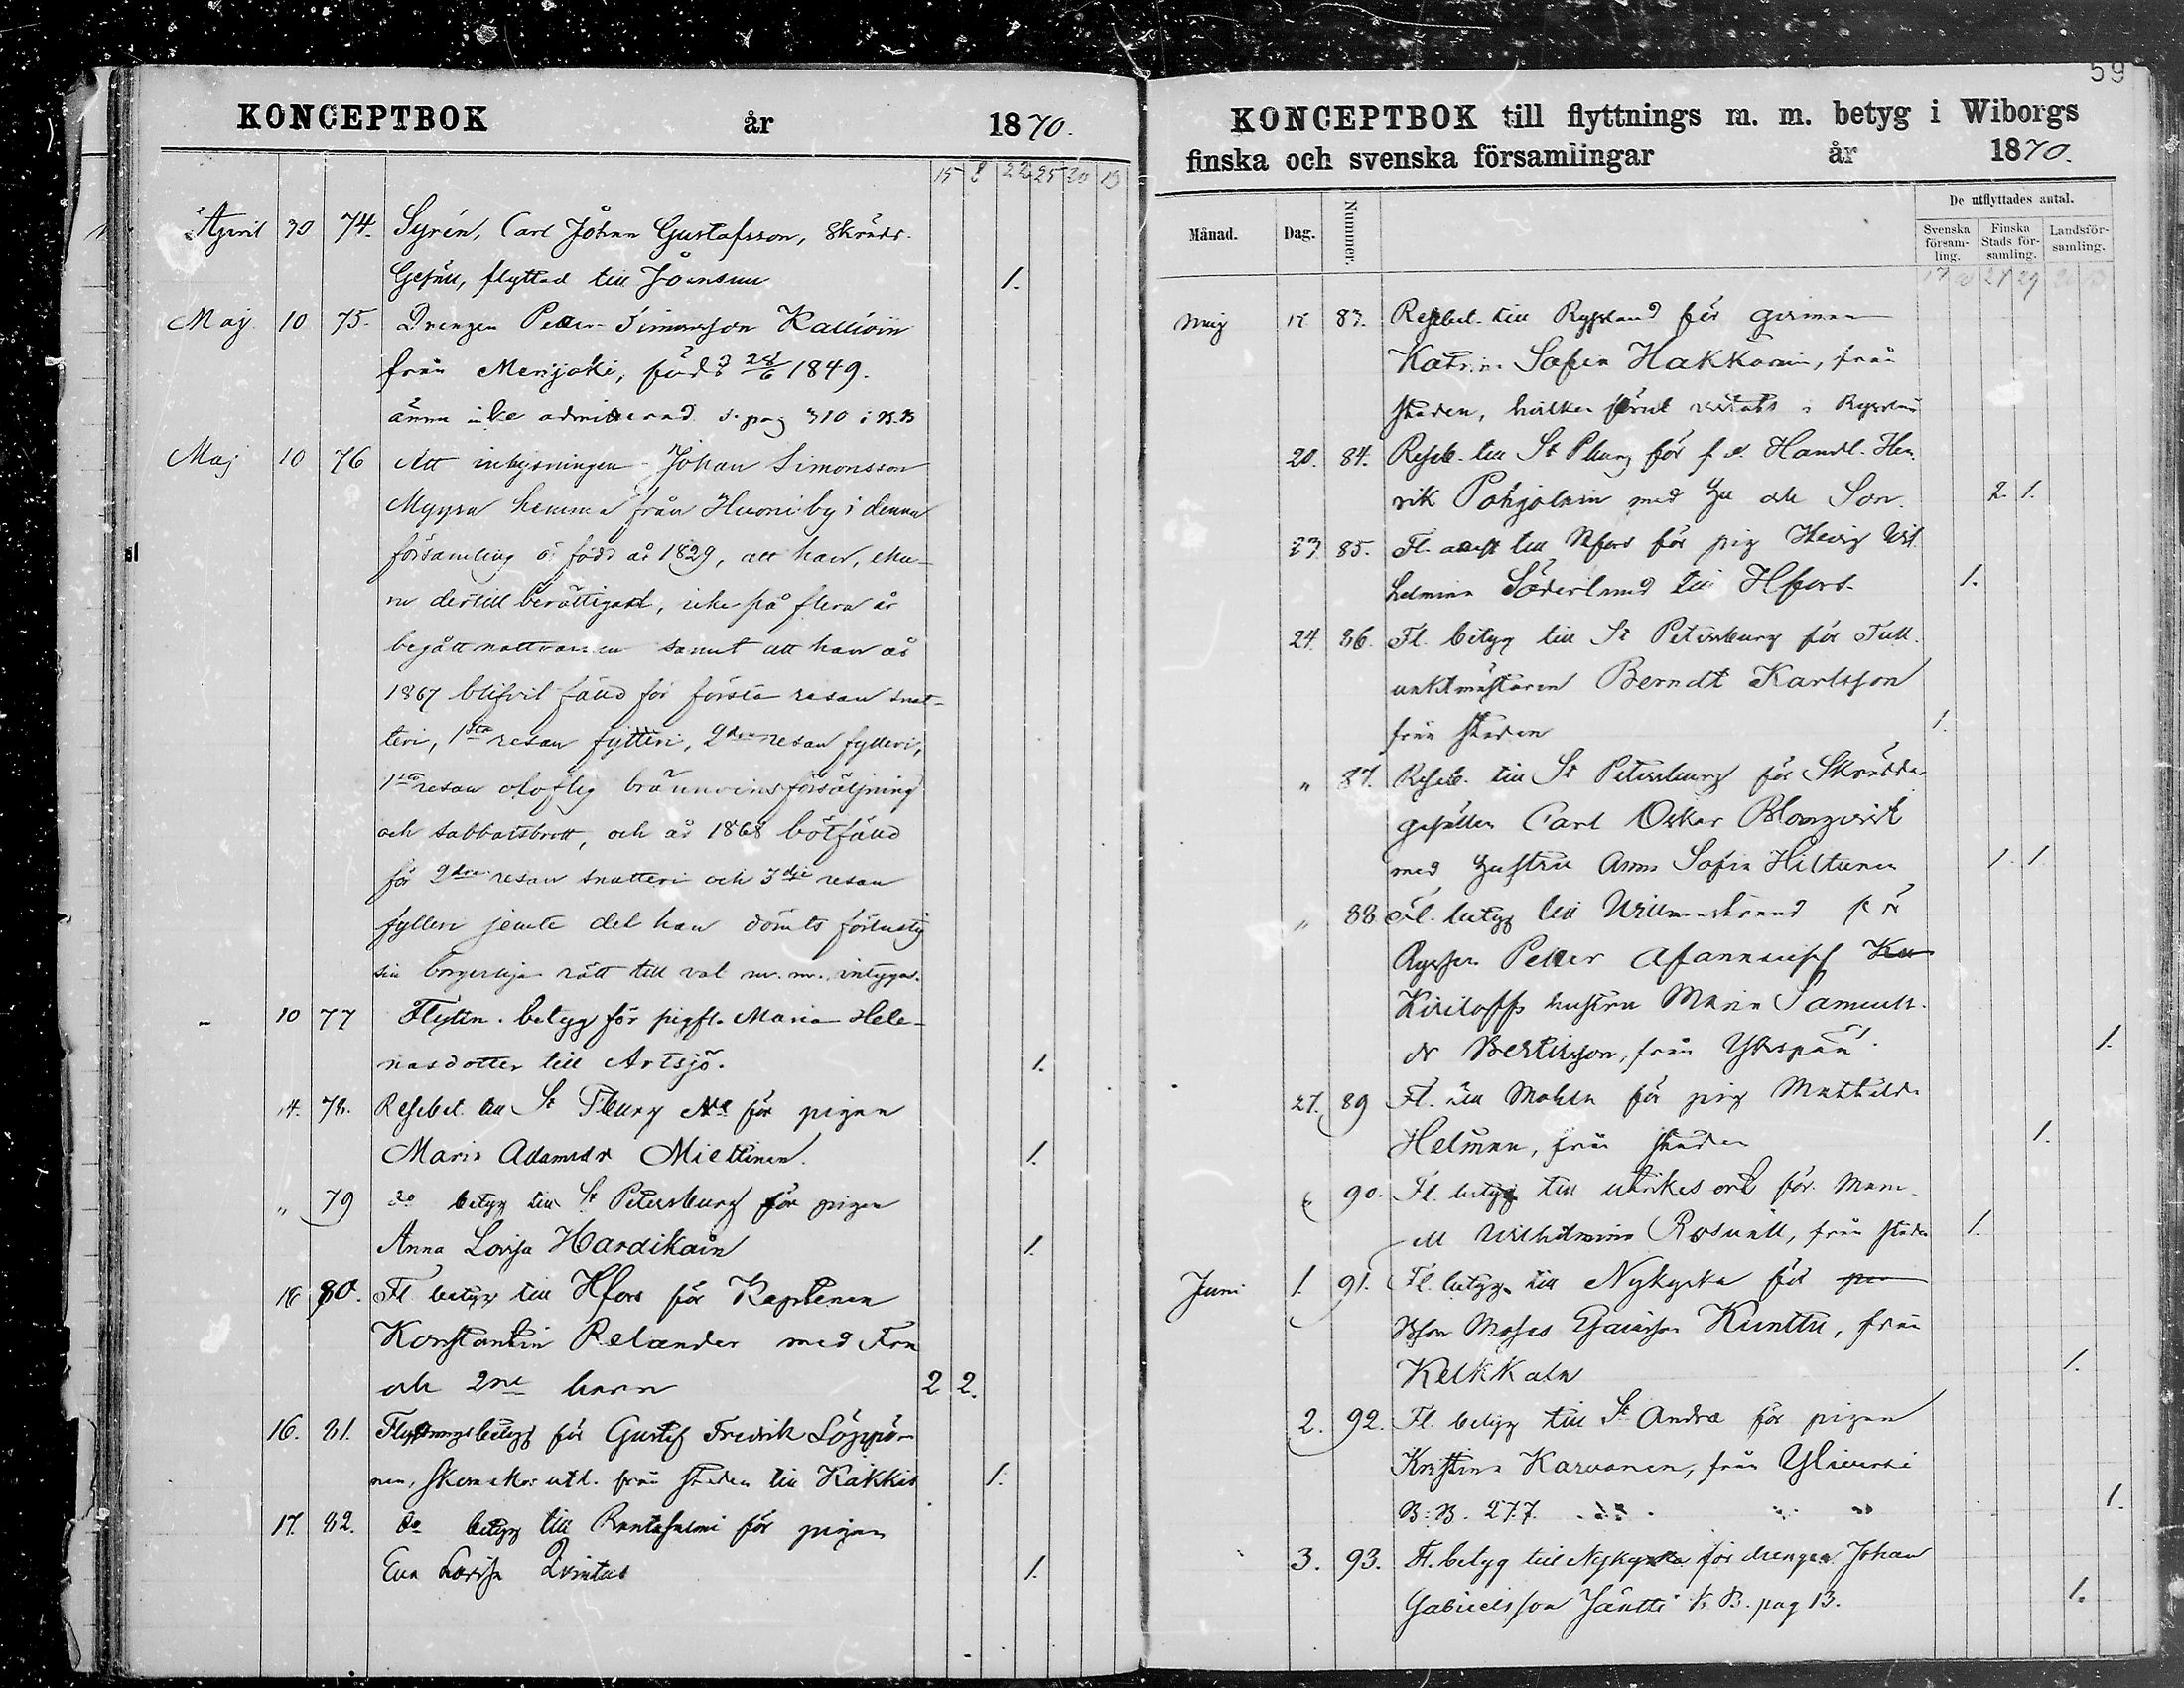 KONCEPTBOK år 1870.
15 8 22 25 20 13
April 30 74. Syrén, Carl Johan Gustafsson, Skrädd.
Gesäll, flyttad till Joensuu 1.
Maj 10 75. Drengen Petter Simonsson Kallioin
från Merijoki, född 28/6 1849.
ännu icke admitterad s. pag 310 i K.B
Maj 10 76 Att inhysningen Johan Simonsson
Myyrä hemma från Huoniby i denna
församling ö. född år 1829, att han, ehu-
ru dertill berättigad, icke på flera år
begått nattvarden samt att han år
1867 blifvit fälld för första resan snat-
teri, 1sta resan fylleri, 2dra resan fylleri,
1sta resan oloflig bränvinsförsäljning
och sabbatsbrott, och år 1868 bötfälld
för 2dra resan snatteri och 3dje resan
fylleri jemte det han dömts förlustig
sin borgerliga rätt till val m. m. intygas.
- 10 77 Flyttn. betyg för pigfl. Maria Hele-
nasdotter till Artsjö. 1.
14. 78. Resebet. till St Pburg för pigan
Maria Adamsdr Miettinen. 1.
" 79 do betyg till St Petersburg för pigan
Anna Lovisa Hardikain 1.
16 80. Fl. betyg till Hfors för Kaptenen
Konstantin Relander med Fru
och 2ne barn 2 2.
16. 81. Flyttningsbetyg för Gustaf Fredrik Löppö-
nen, skomakar utl. från staden till Kakkis 1.
17. 82. do betyg till Rantasalmi för pigan
Eva Lovisa Qvintus 1.
59
KONCEPTBOK till flyttnings m. m. betyg i Wiborgs
finska och svenska församlingar år 1870.
Månad. Dag. Nummer. De utflyttades antal.
Svenska församling. Finska Stads församling. Landsförsamling.
Maj 17 83. Resebet. till Ryssland för
Katrin Sofia Hakkarain, från
staden, hvilken förut vistats i Ryssland
20. 84. Reseb. till St Pburg för f. d. Handl. Hen
rik Pohjolain med Hu och Son. 2. 1.
23. 85. Fl. attest till Hfors för pig Hedvig Wil
helmina Söderlund till Hfors. 1.
24. 86. Fl. betyg till St Petersburg för Tull.
vaktmästaren Berndt Karlsson
från staden 1.
" 87. Reseb. till St Petersburg för Skräddar
gesällen Carl Oskar Blomqvist
med hustru Anna Sofia Hiltunen 1. 1.
" 88 Fl. betyg till Willmanstrand för
Ryssen Petter Afannasieff Ku
Kiriloffs hustru Maria Samuels.
dr Bertilsson, från Ykspää. 1.
27. 89 Fl. till Mohla för pig Mathilda
Helman, från staden 1.
" 90. Fl. betyg till utrikes ort för Mam.
sell Wilhelmina Rosvall, från staden 1.
Juni 1. 91. Fl. betyg till Nykyrka för
Bson Moses Esaiasson Kunttu, från
Kelkkala 1.
2. 92. Fl. betyg till St Andrae för pigan
Kristina Karvanen, från Ylivesi
B: B. 277. 1.
3. 93. Fl. betyg till Nykyrka för drengen Johan
Gabrielsson Jäntti K. B. pag 13. 1.